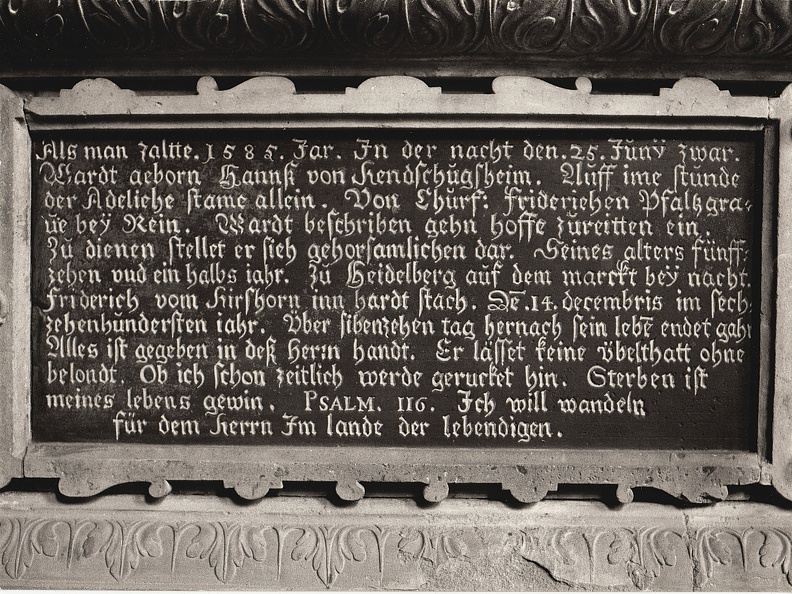 Als man zaltte. 1585. Jar. In der nacht den. 25. Junÿ zwar.
Wardt geborn Hannß von Hendschugsheim. Auff ime stunde
der Adeliche stame allein. Von Churf: Friderichen Pfaltzgra-
ue beÿ Rein. Wardt beschriben gehn hoffe zureitten ein.
Zu dienen stellet er sich gehorsamlichen dar. Seines alters fünff-
zehen vnd ein halbs iahr. Zu Heidelberg auf dem marckt beÿ nacht.
Friderich vom Hirshorn inn hardt stach. Dē. 14. decembris im sech
zehenhundersten iahr. Vber sibenzehen tag hernach sein lebē endet gahr
Alles ist gegeben in deß Herrn handt. Er lässet keine vbelthatt ohne
belondt. Ob ich schon zeitlich werde gerucket hin. Sterben ist
meines lebens gewin. PSALM. 116. Ich will wandeln
für dem Herrn Im lande der lebendigen.